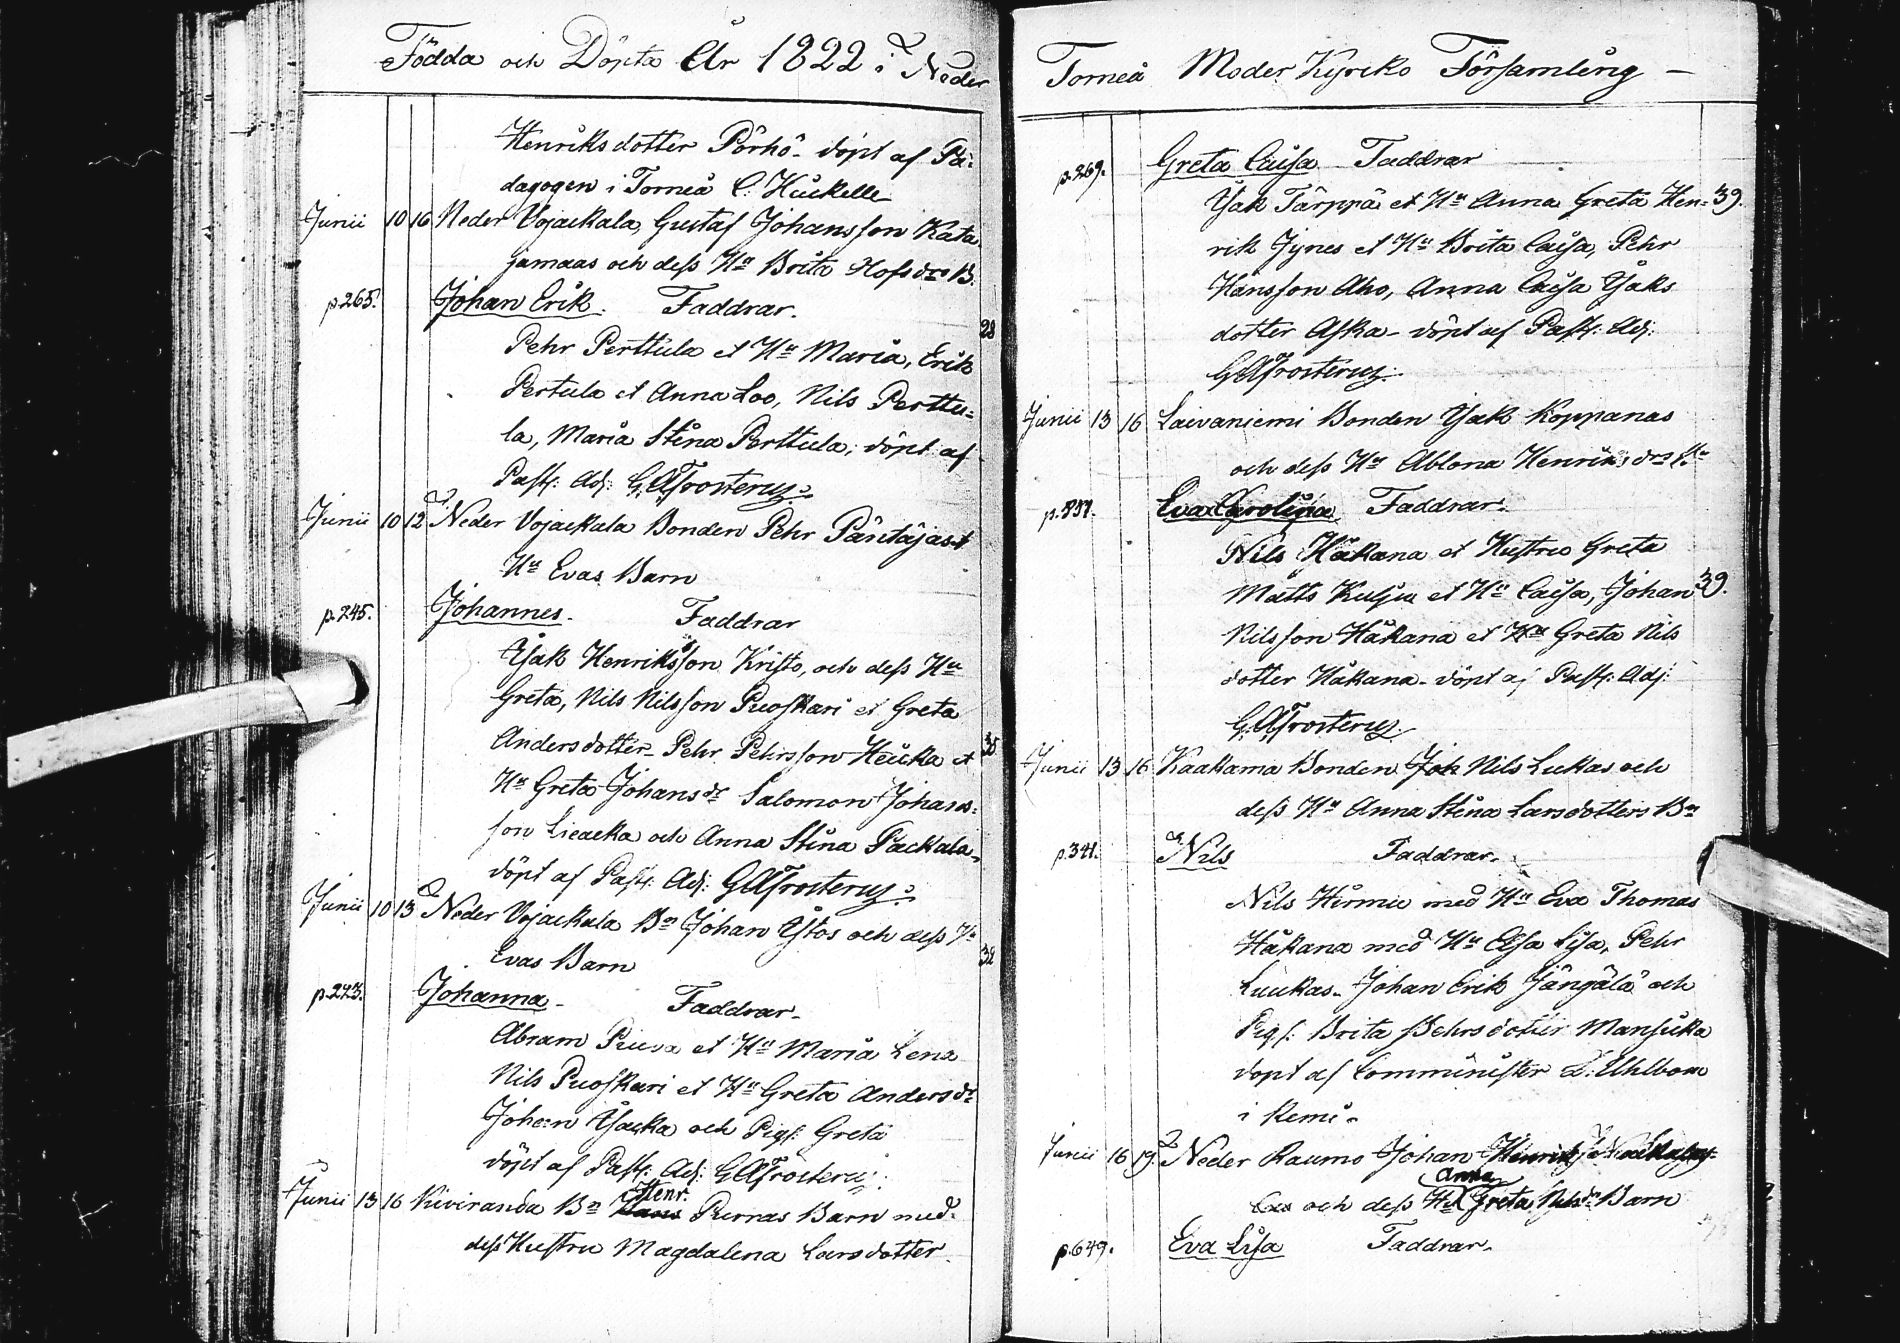 Födda och Döpta År 1822 i Neder
Henriksdotter Pörhö - döpt af Pä-
dagogen i Torneå C. Huckelle
Junii 10 16 Neder Vojackala, Gustaf Johansson Kata
jamaas och dess Hu Brita Hofsdrs B.
p.265. Johan Erik. Faddrar.
28
Pehr Perttula et Hu Maria, Erik
Pertula et Anna Loo, Nils Perttu-
la, Maria Stina Perttula, döpt af
Past: Adj: G.A. Frosterus.
Junii 10 12 Neder Vojackala Bonden Pehr Päntäjas et
Hu Evas Barn
p.245. Johannes. Faddrar
Isak Henriksson Kristo, och dess Hu
Greta, Nils Nilsson Puoskari et Greta
Andersdotter - Pehr Pehrsson Heicka et
Hu Greta Johansdr Salomon Johans-
son Lieacka och Anna Stina Packala -
döpt af Past. Adj: G.A. Frosterus.
Junii 10 13 Neder Vojackala Bn Johan Ystos och dess Hu
32
Evas Barn
p.223. Johanna - Faddrar -
Abram Priwa et Hu Maria Lena
Nils Puoskari et Hu Greta Andersdr
Johan Isacka och Pig: Greta
döpt af Past. Adj: G.A. Frosterus.
Henr.
Junii 13 16 Kiviranda Bn Hans Rurnas Barn med
dess Hustru Magdalena Larsdotter
Torneå Moder Kyrko Församling -
p.269. Greta Caisa Faddrar
Isak Tärppä et Hu Anna Greta Hen- 39.
rik Jynes et Hu Brita Caisa, Pehr
Hansson Aho, Anna Caisa Isaks
dotter Aska - döpt af Past: Adj:
G.A. Frosterus.
Junii 13 16 Laivaniemi Bonden Isak Koppanas
och dess Hu Ablona Henriksdrs
Eva Carolina Faddrar.
Nils Håkana et Hustru Greta
Matts Kulju et Hu Caisa, Johan 39.
Nilsson Håkana et Hu Greta Nils
dotter Håkana - döpt af Past: Adj:
G.A. Frosterus.
Junii 13 16 Kaakama Bonden Joh Nils Lukas och
dess Hu Anna Stina Larsdotters Bn
p.341. Nils Faddrar.
Nils Hirmu med Hu Eva Thomas
Håkana med Hu Lisa, Pehr
Luukas - Johan Erik Jängälä och
Pig: Brita Pehrsdotter Mansicka
döpt af Comminister Uhlbom
i Kemi -
Junii 16 19 Neder Raumo Johan Henrik
Anna
och dess Hu Greta Barn
p.649. Eva Lisa Faddrar.